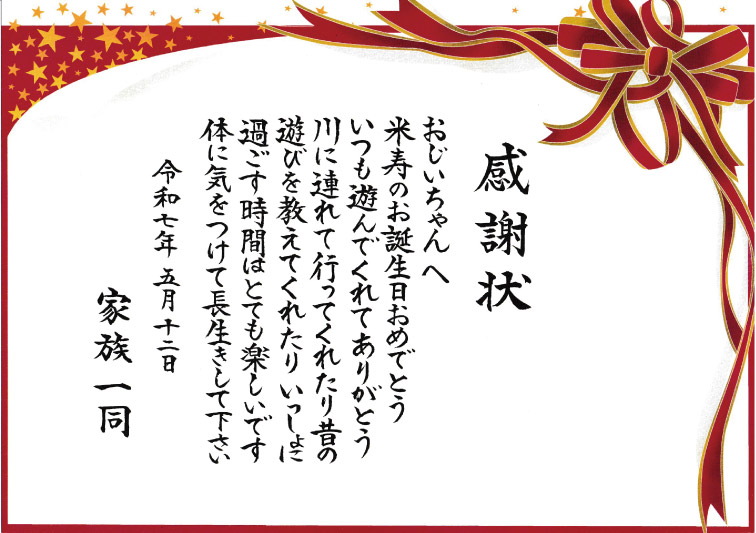 感謝状
おじいちゃんへ
米寿のお誕生日おめでとう
いつも遊んでくれてありがとう
川に連れて行ってくれたり昔の
遊びを教えてくれたりいっしょに
過ごす時間はとても楽しいです
体に気をつけて長生きして下さい
令和七年 五月十二日
家族一同